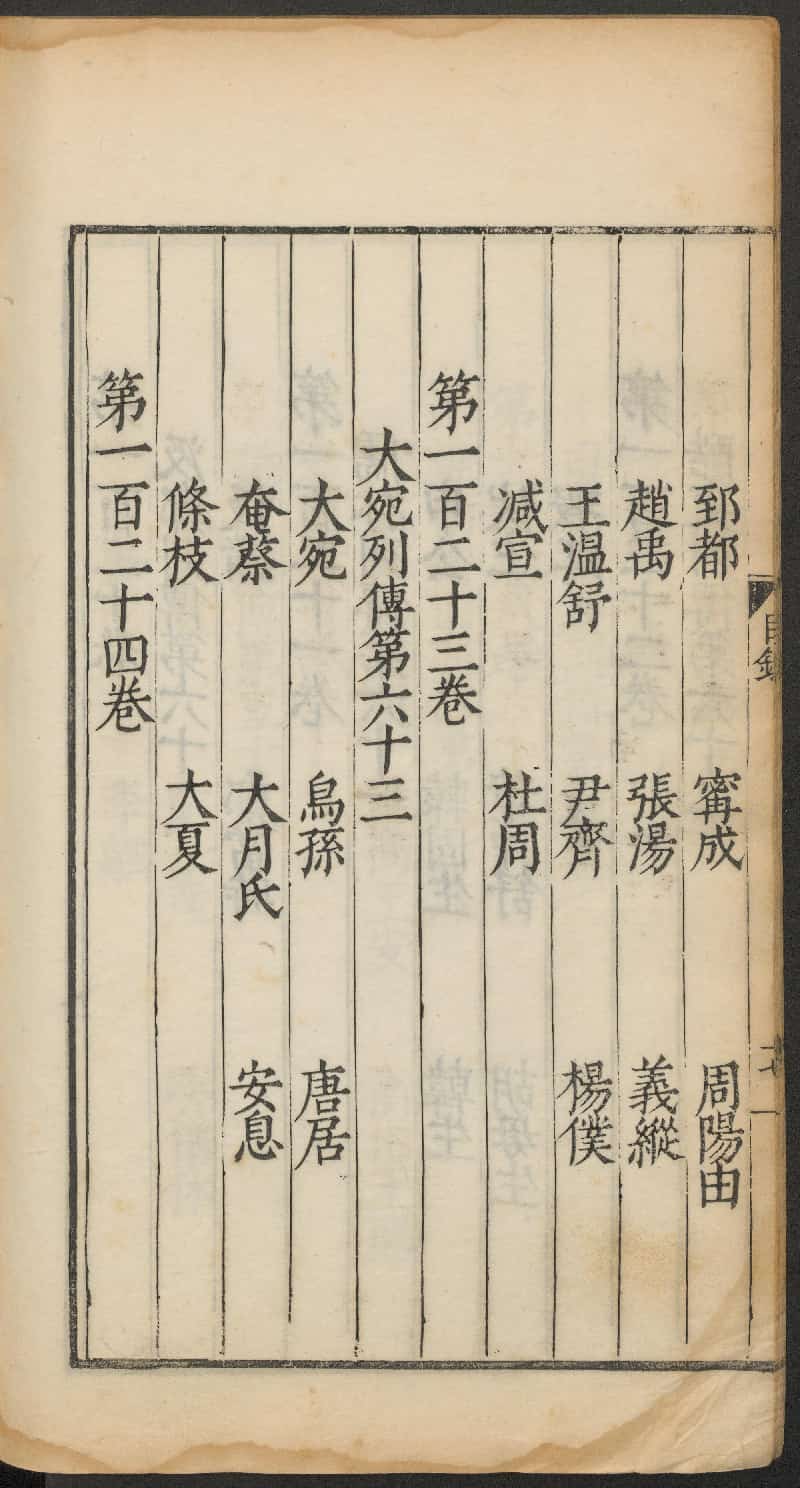 郅都 甯成 周陽由
趙禹 張湯 義縱
王溫舒 尹齊 楊僕
減宣 杜周
第一百二十三卷
大宛列傳第六十三
大宛 烏孫 唐居
奄蔡 大月氏 安息
條枝 大夏
第一百二十四卷
目錄